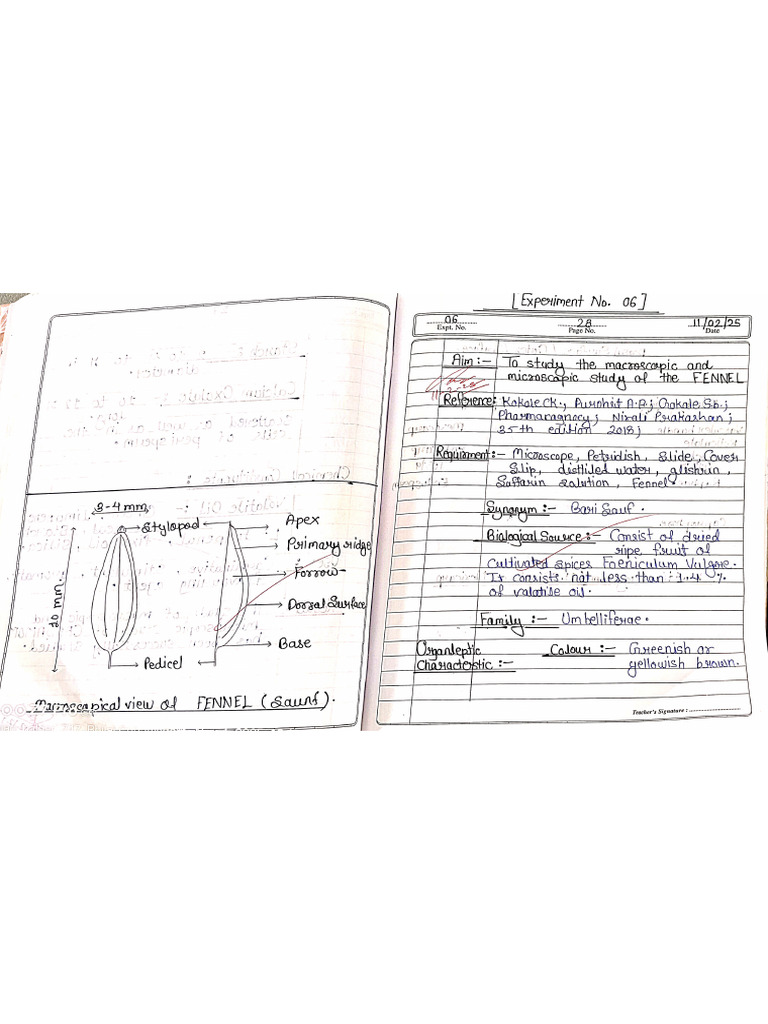 3-4 mm
Stylopod
Apex
Primary ridge
Forrow
10 mm.
Dorsal Surface
Base
Pedicel
Macroscopical view of FENNEL (Saunf).
[Experiment No. 06]
06
28
11/02/25
Expt. No.
Page No.
Date
Aim :- To study the macroscopic and
microscopic study of the FENNEL
Reference: Kokole CK., Purohit A.P.; Gokale S.b.;
Pharmacagnocy; Nirali Prakashan;
35th edition 2018;
Requirment :- Microscope, Petridish, Slide, Cover
Slip, distilled water, glishrin,
Saffarin Solution, Fennel
Synonym :- Bari Sauf.
Biological Source :- Consist of dried
ripe fruit of
Cultivated spices Foeniculum Vulgore.
It consists not less than 1.4 %
of valatile oil.
Family :- Umbelliferae.
Organleptic Colour :- Greenish or
Characteostic :- yellowish brown.
Teacher's Signature :